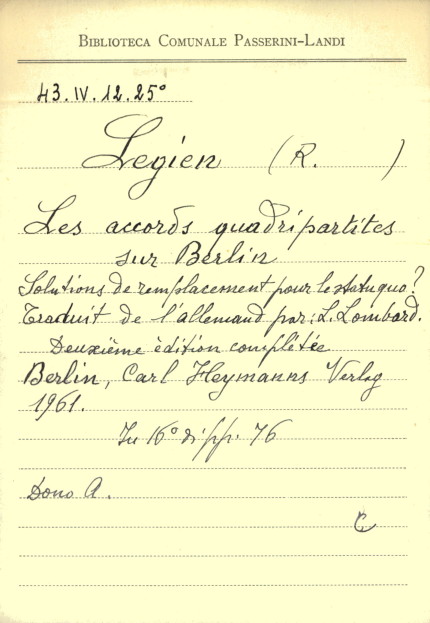 BIBLIOTECA COMUNALE PASSERINI-LANDI
43.IV.12.25°
Legien (R. )
Les accords quadripartites
sur Berlin
Solutions de remplacement pour le statu quo?
Traduit de l'allemand par: L. Lombard.
Deuxième èdition complétée
Berlin, Carl Heymanns Verlag
1961.
In 16° di pp. 76
Dono A.
C